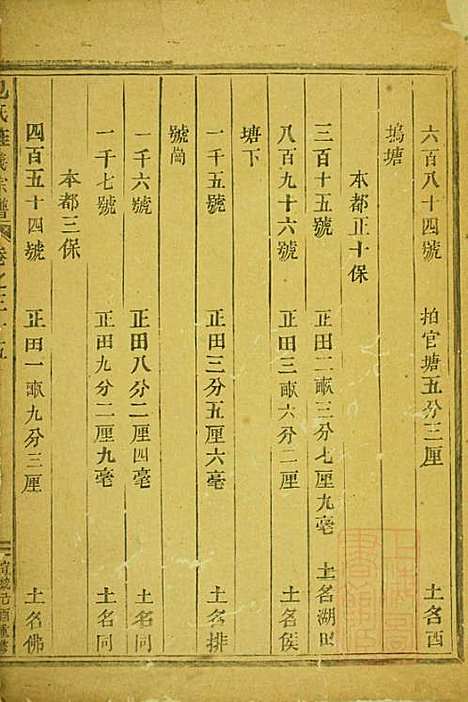 六百八十四號 拍官塘五分三厘 土名酉
塢塘
本都正十保
三百十五號 正田二畝三分七厘九毫 土名湖田
八百九十六號 正田三畝六分二厘 土名矦
塘下
一千五號 正田三分五厘六毫 土名排
號崗
一千六號 正田八分二厘四毫 土名同
一千七號 正田九分二厘九毫 土名同
本都三保
四百五十四號 正田一畝九分三厘 土名佛
氏 宗譜 卷之三十五 宣統己酉重修